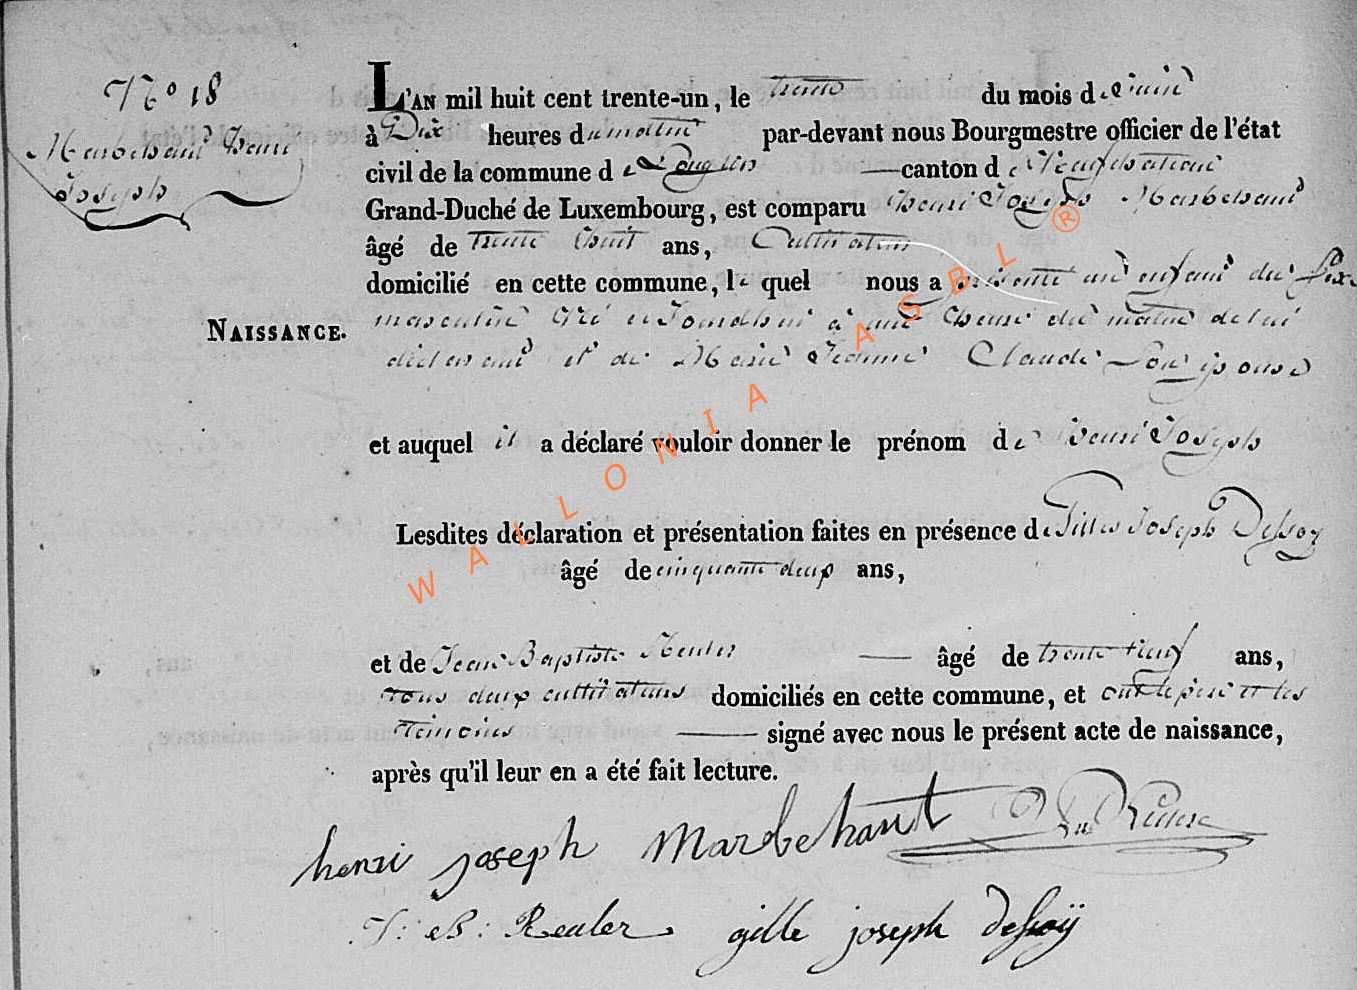 N° 18
Marbehant henri
Joseph
L'AN mil huit cent trente-un, le trente du mois de Juin
à Dix heures du matin par-devant nous Bourgmestre officier de l'état
civil de la commune de Longlier — canton de Neufchateau
Grand-Duché de Luxembourg, est comparu henri Joseph Marbehant
âgé de trente huit ans, Cultivateur
domicilié en cette commune, lequel nous a présenté un enfant du sexe
NAISSANCE.
masculin né cejourdhui à une heure du matin de lui
déclarant et de Marie Jeanne Claude son épouse
et auquel il a déclaré vouloir donner le prénom de henri Joseph
Lesdites déclaration et présentation faites en présence de Gilles Joseph Dessoy
âgé de cinquante deux ans,
et de Jean Baptiste Reuler — âgé de trente neuf ans,
tous deux cultivateurs domiciliés en cette commune, et ont le père et les
témoins — signé avec nous le présent acte de naissance,
après qu'il leur en a été fait lecture.
henri joseph Marbehant
J: B: Reuler gille joseph dessoÿ
WALLONIA ASBL ®